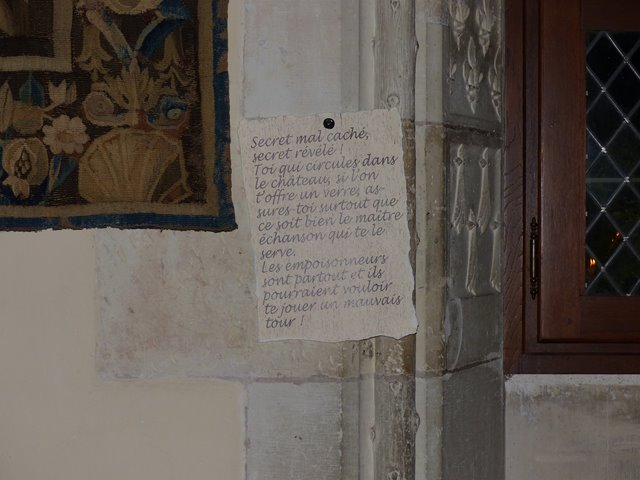 Secret mal caché,
secret révélé !
Toi qui circules dans
le château, si l'on
t'offre un verre, as-
sures-toi surtout que
ce soit bien le maître
échanson qui te le
serve.
Les empoisonneurs
sont partout et ils
pourraient vouloir
te jouer un mauvais
tour !